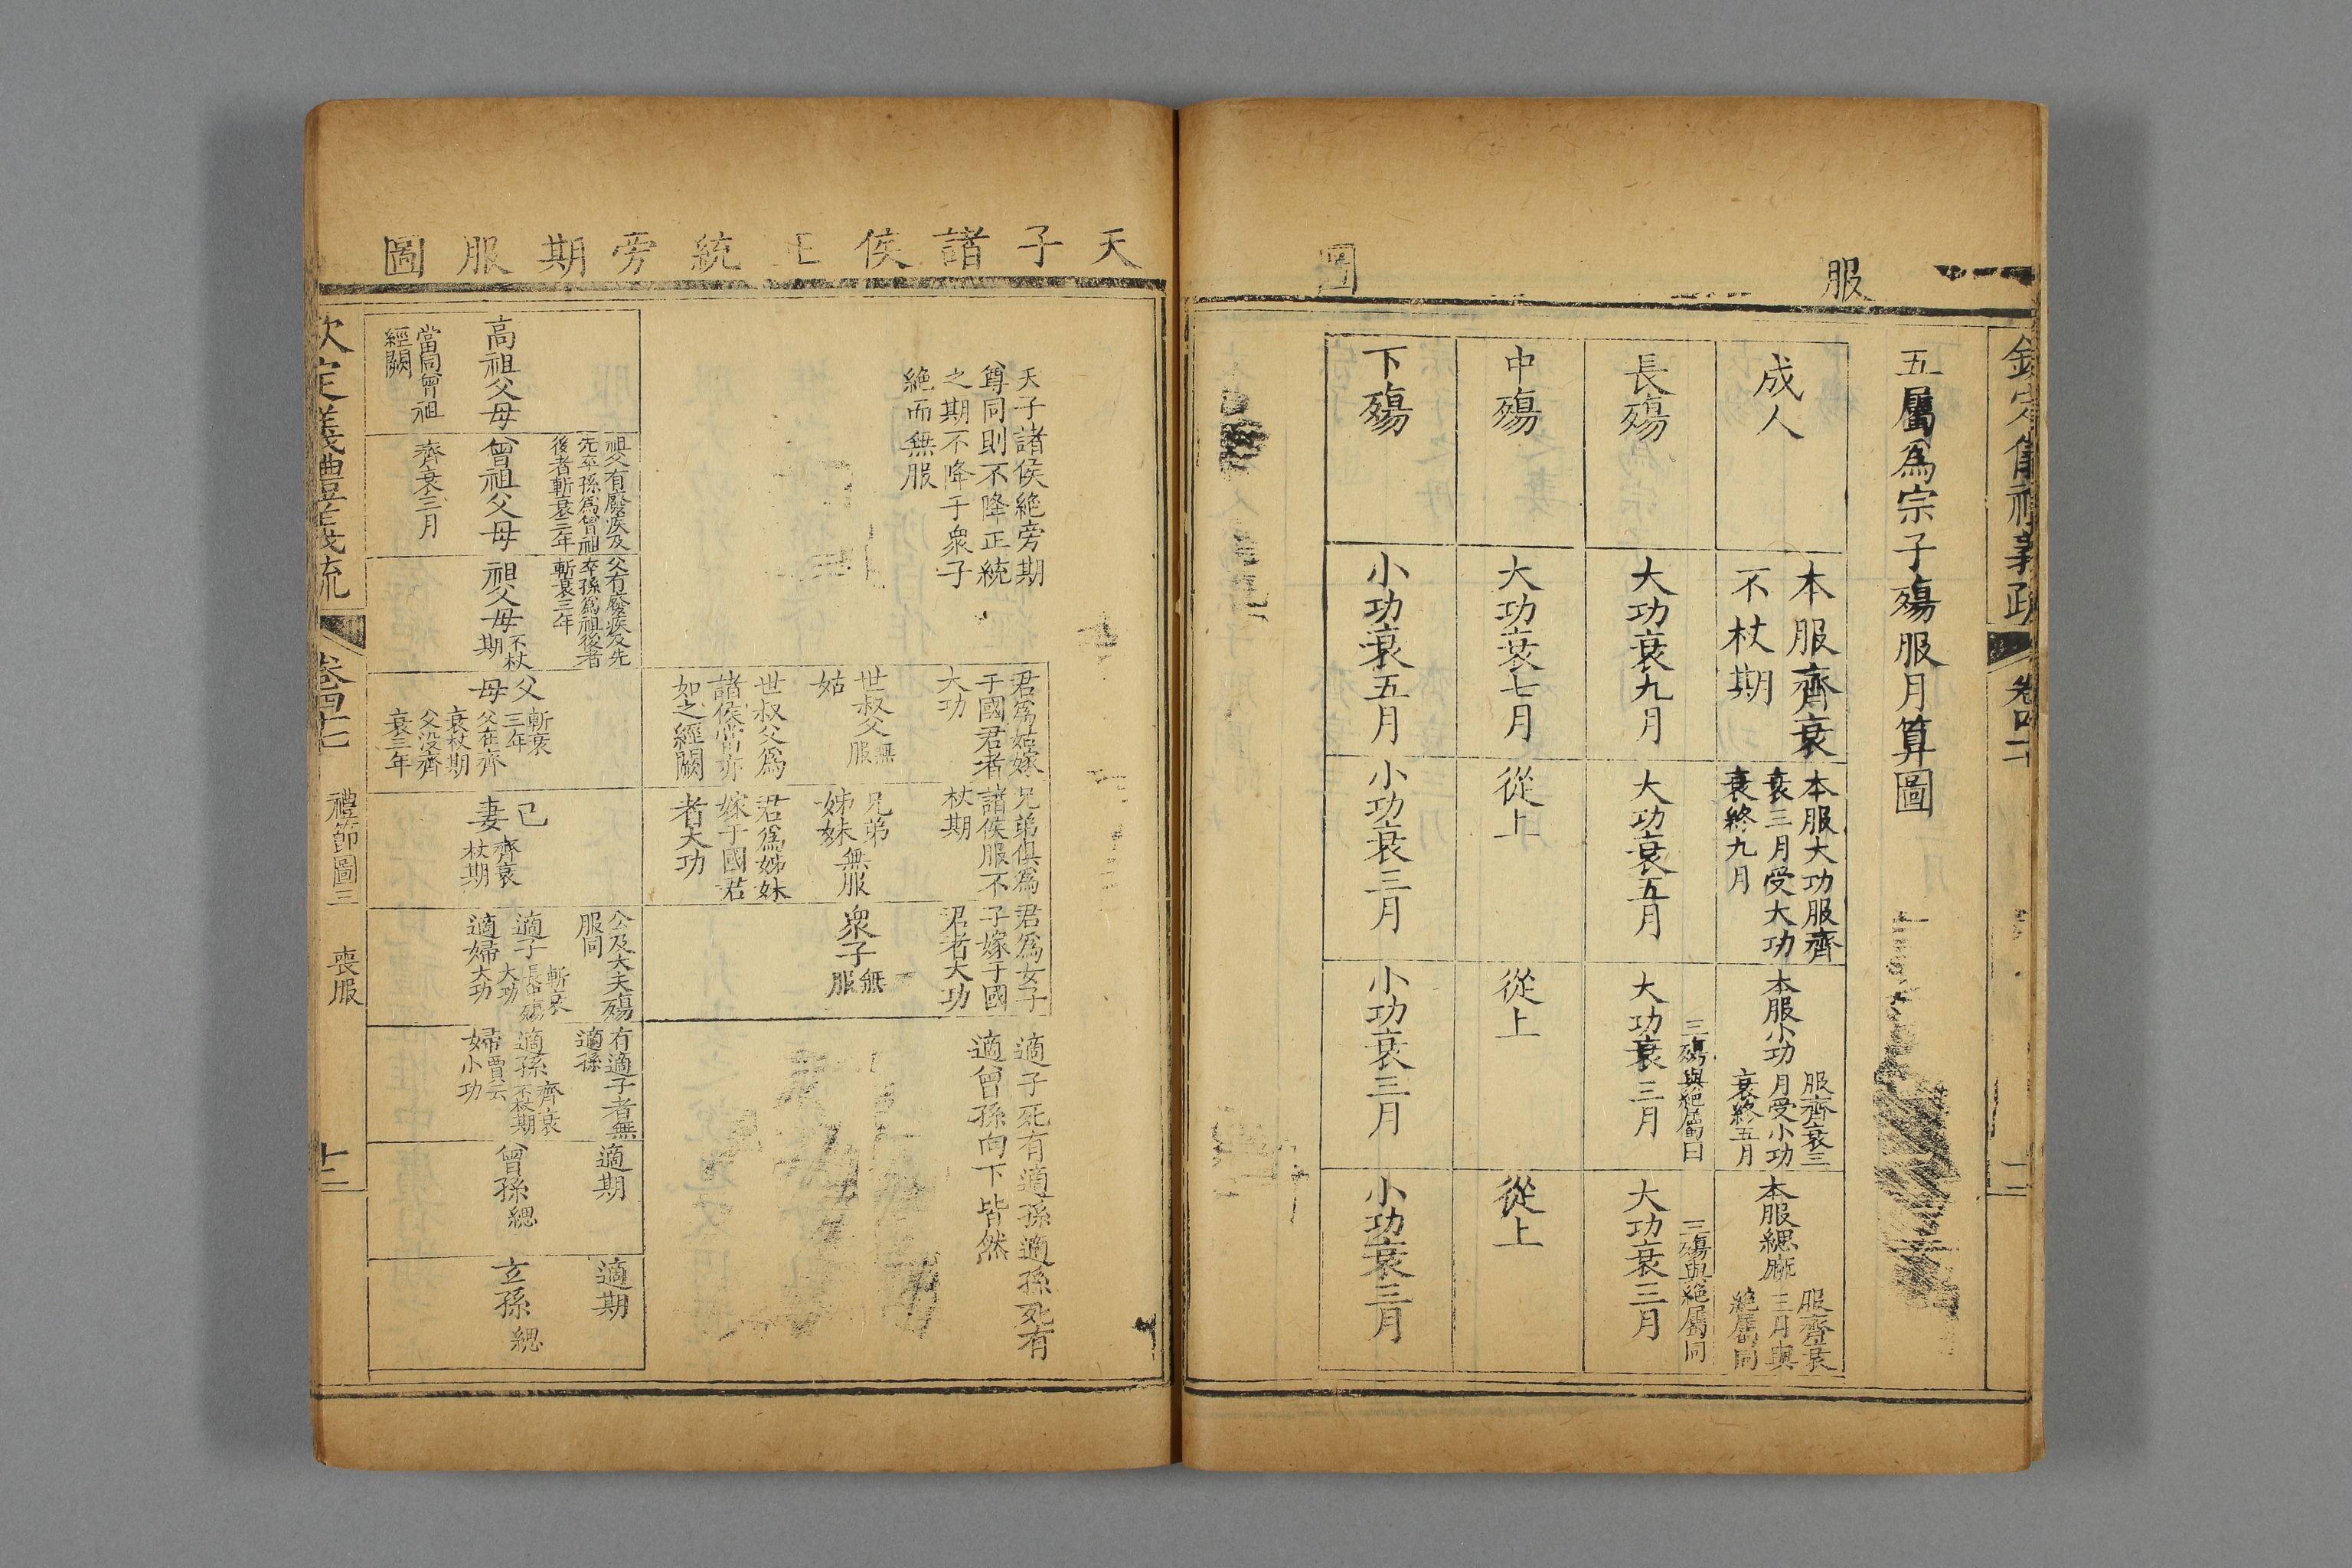 服
圖
五屬爲宗子殤服月算圖
成人
本服齊衰
不杖期
本服大功服齊
衰三月受大功
衰終九月
本服小功
服齊衰三
月受小功
衰終五月
本服緦麻
服齊衰
三月與
絶屬同
長殤
大功衰九月
大功衰五月
大功衰三月
三殤與絶屬曰
大功衰三月
三殤與絶屬同
中殤
大功衰七月
從上
從上
從上
下殤
小功衰五月
小功衰三月
小功衰三月
小功衰三月
天子諸侯正統旁期服圖
天子諸侯絶旁期
尊同則不降正統
之期不降于衆子
絶而無服
君爲姑嫁
于國君者
大功
世叔父
姑
無服
世叔父爲
諸侯當亦
如之經闕
兄弟俱爲
諸侯服不
杖期
兄弟
姊妹
無服
君爲姊妹
嫁于國君
者大功
君爲女子
子嫁于國
君者大功
衆子
無服
適子死有適孫適孫死有
適曾孫向下皆然
高祖父母
當同曾祖
經闕
祖父有廢疾及
先卒孫爲曾祖
後者斬衰三年
曾祖父母
齊衰三月
父有廢疾及先
卒孫爲祖後者
斬衰三年
祖父母
不杖期
父
斬衰三年
母
父在齊
衰杖期
父没齊
衰三年
己
妻
齊衰
杖期
公及大夫殤
服同
適子
斬衰
長中殤
大功
適婦
大功
有適子者無
適孫
適孫
齊衰
不杖期
婦
賈云
小功
適期
曾孫
緦
適期
玄孫
緦
欽定義禮義疏
禮節圖三
喪服